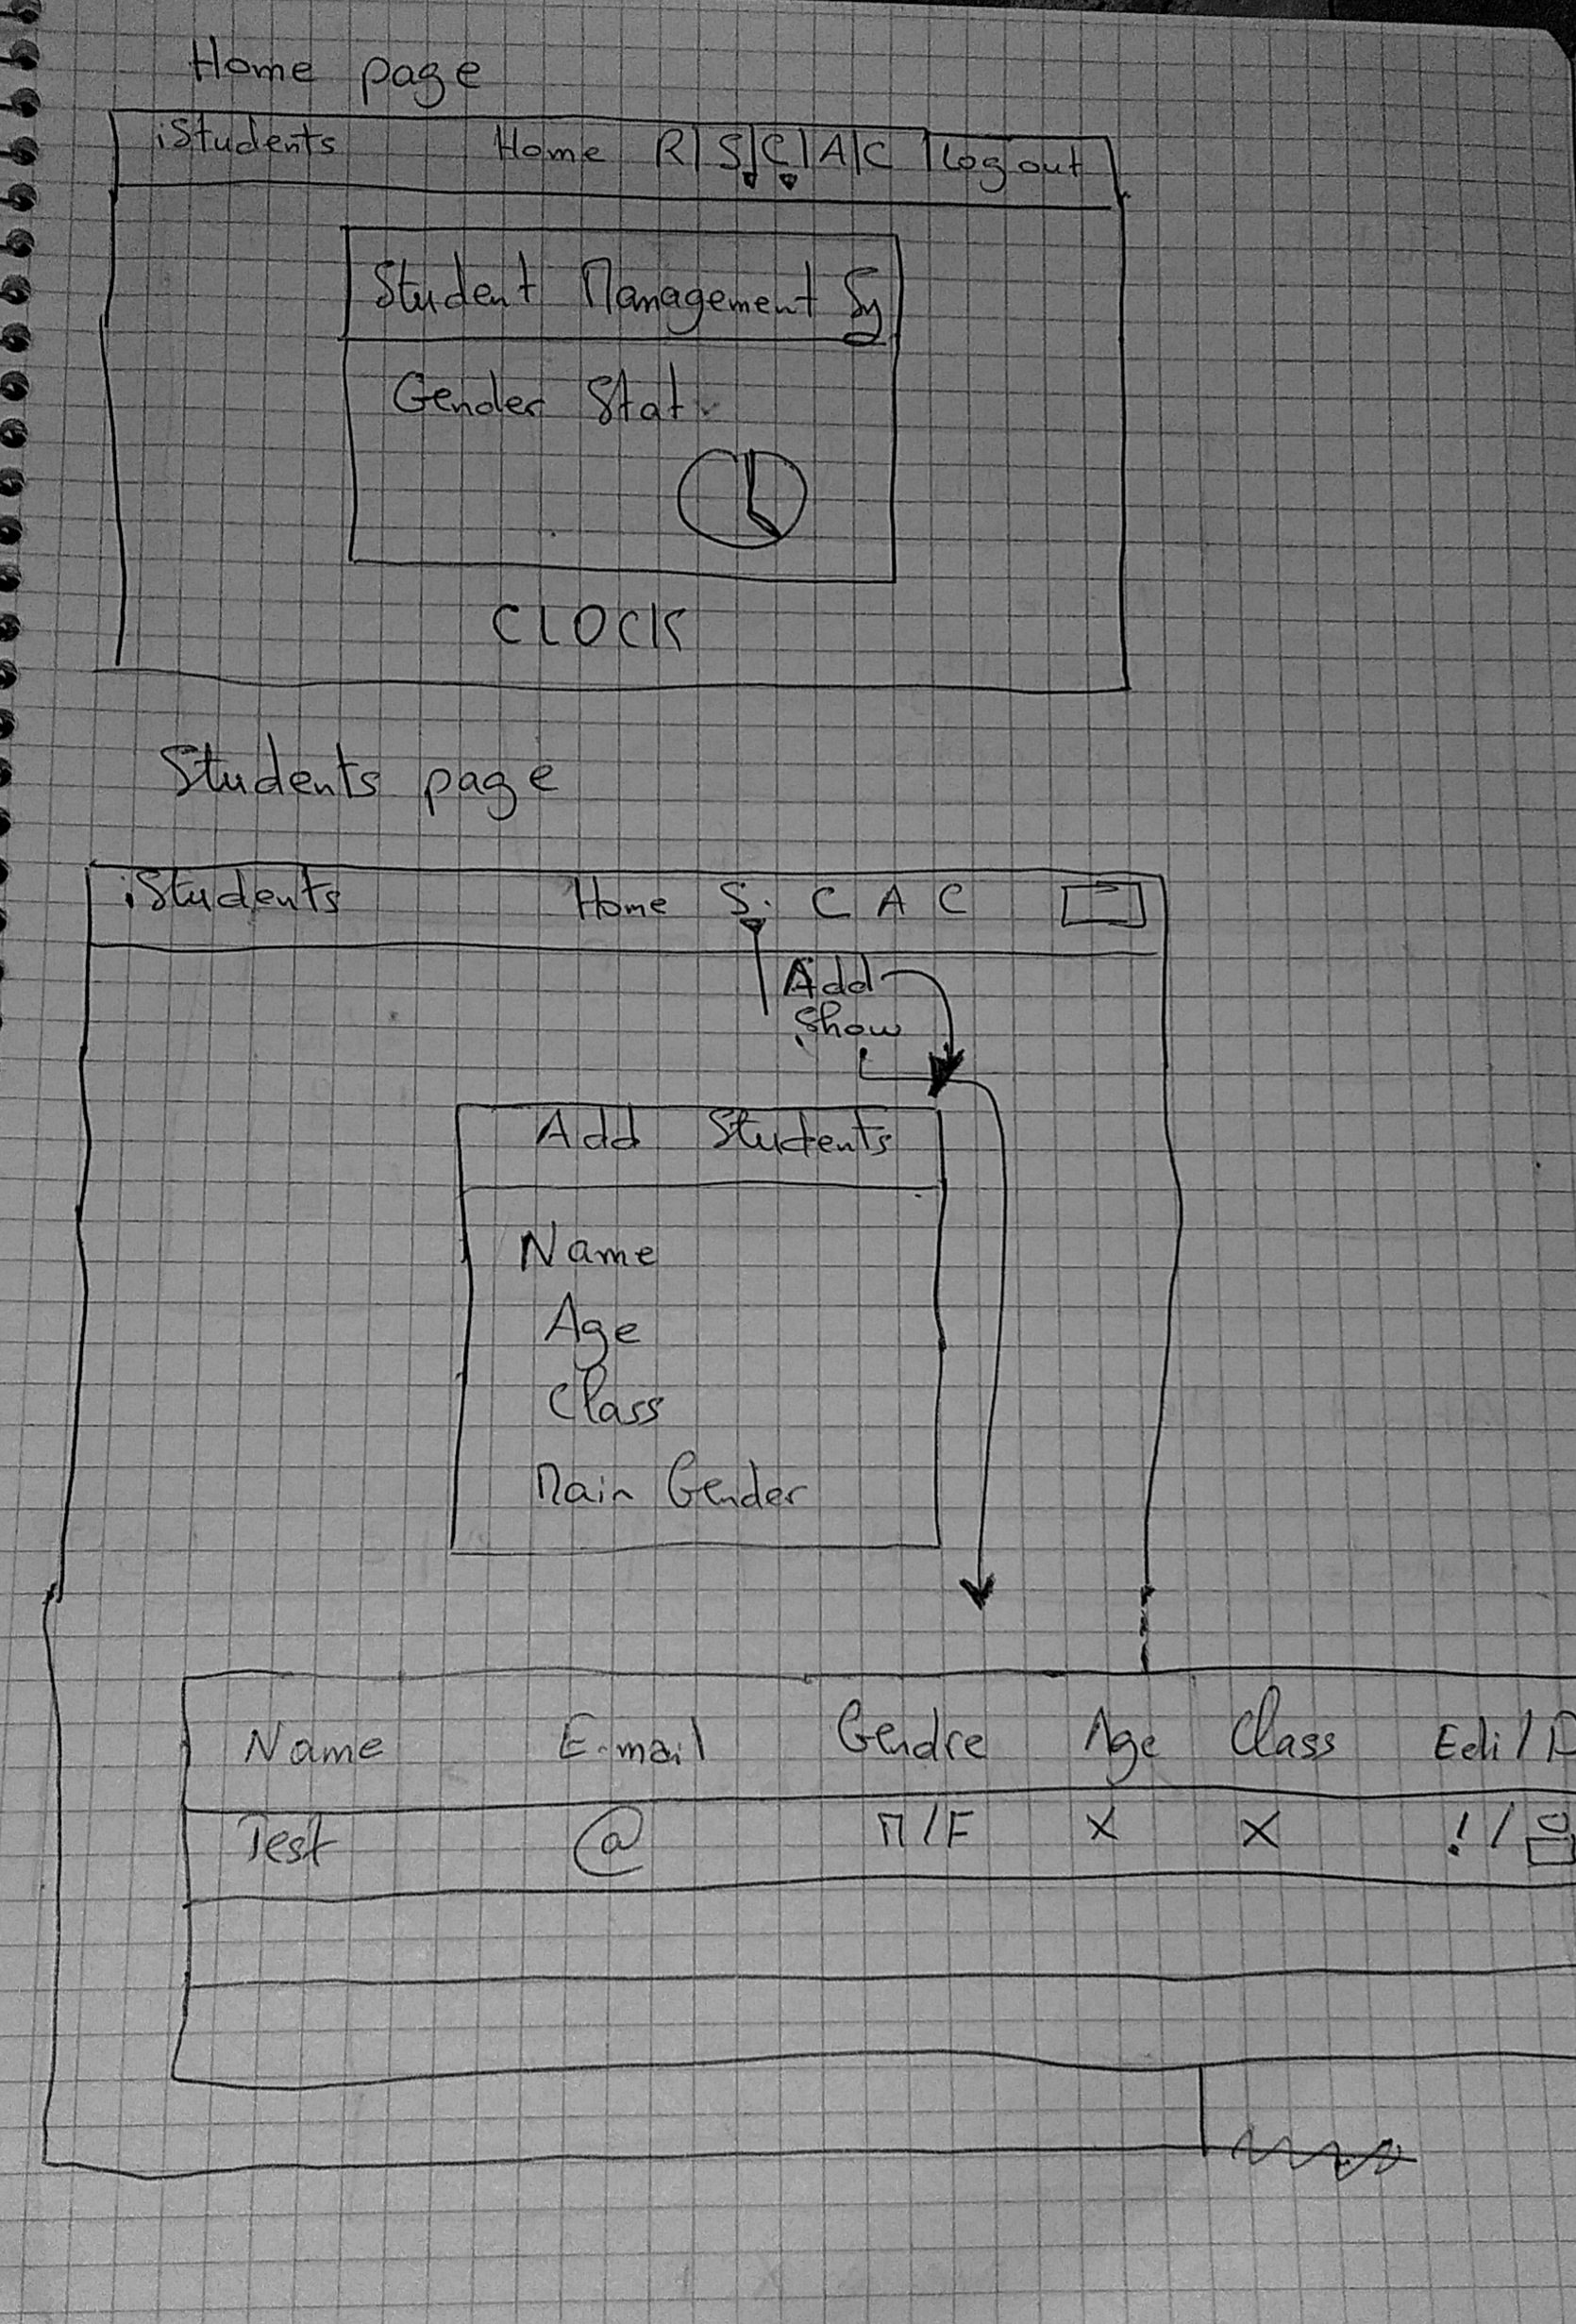 Home page
iStudents Home R | S | C | A | C | Log out
Student Management Sy
Gender Stat
CLOCK
Students page
iStudents Home S. C A C
Add
Show
Add Students
Name
Age
Class
Main Gender
Name E-mail Gendre Age Class Edi / D
Test @ M / F X X ! /